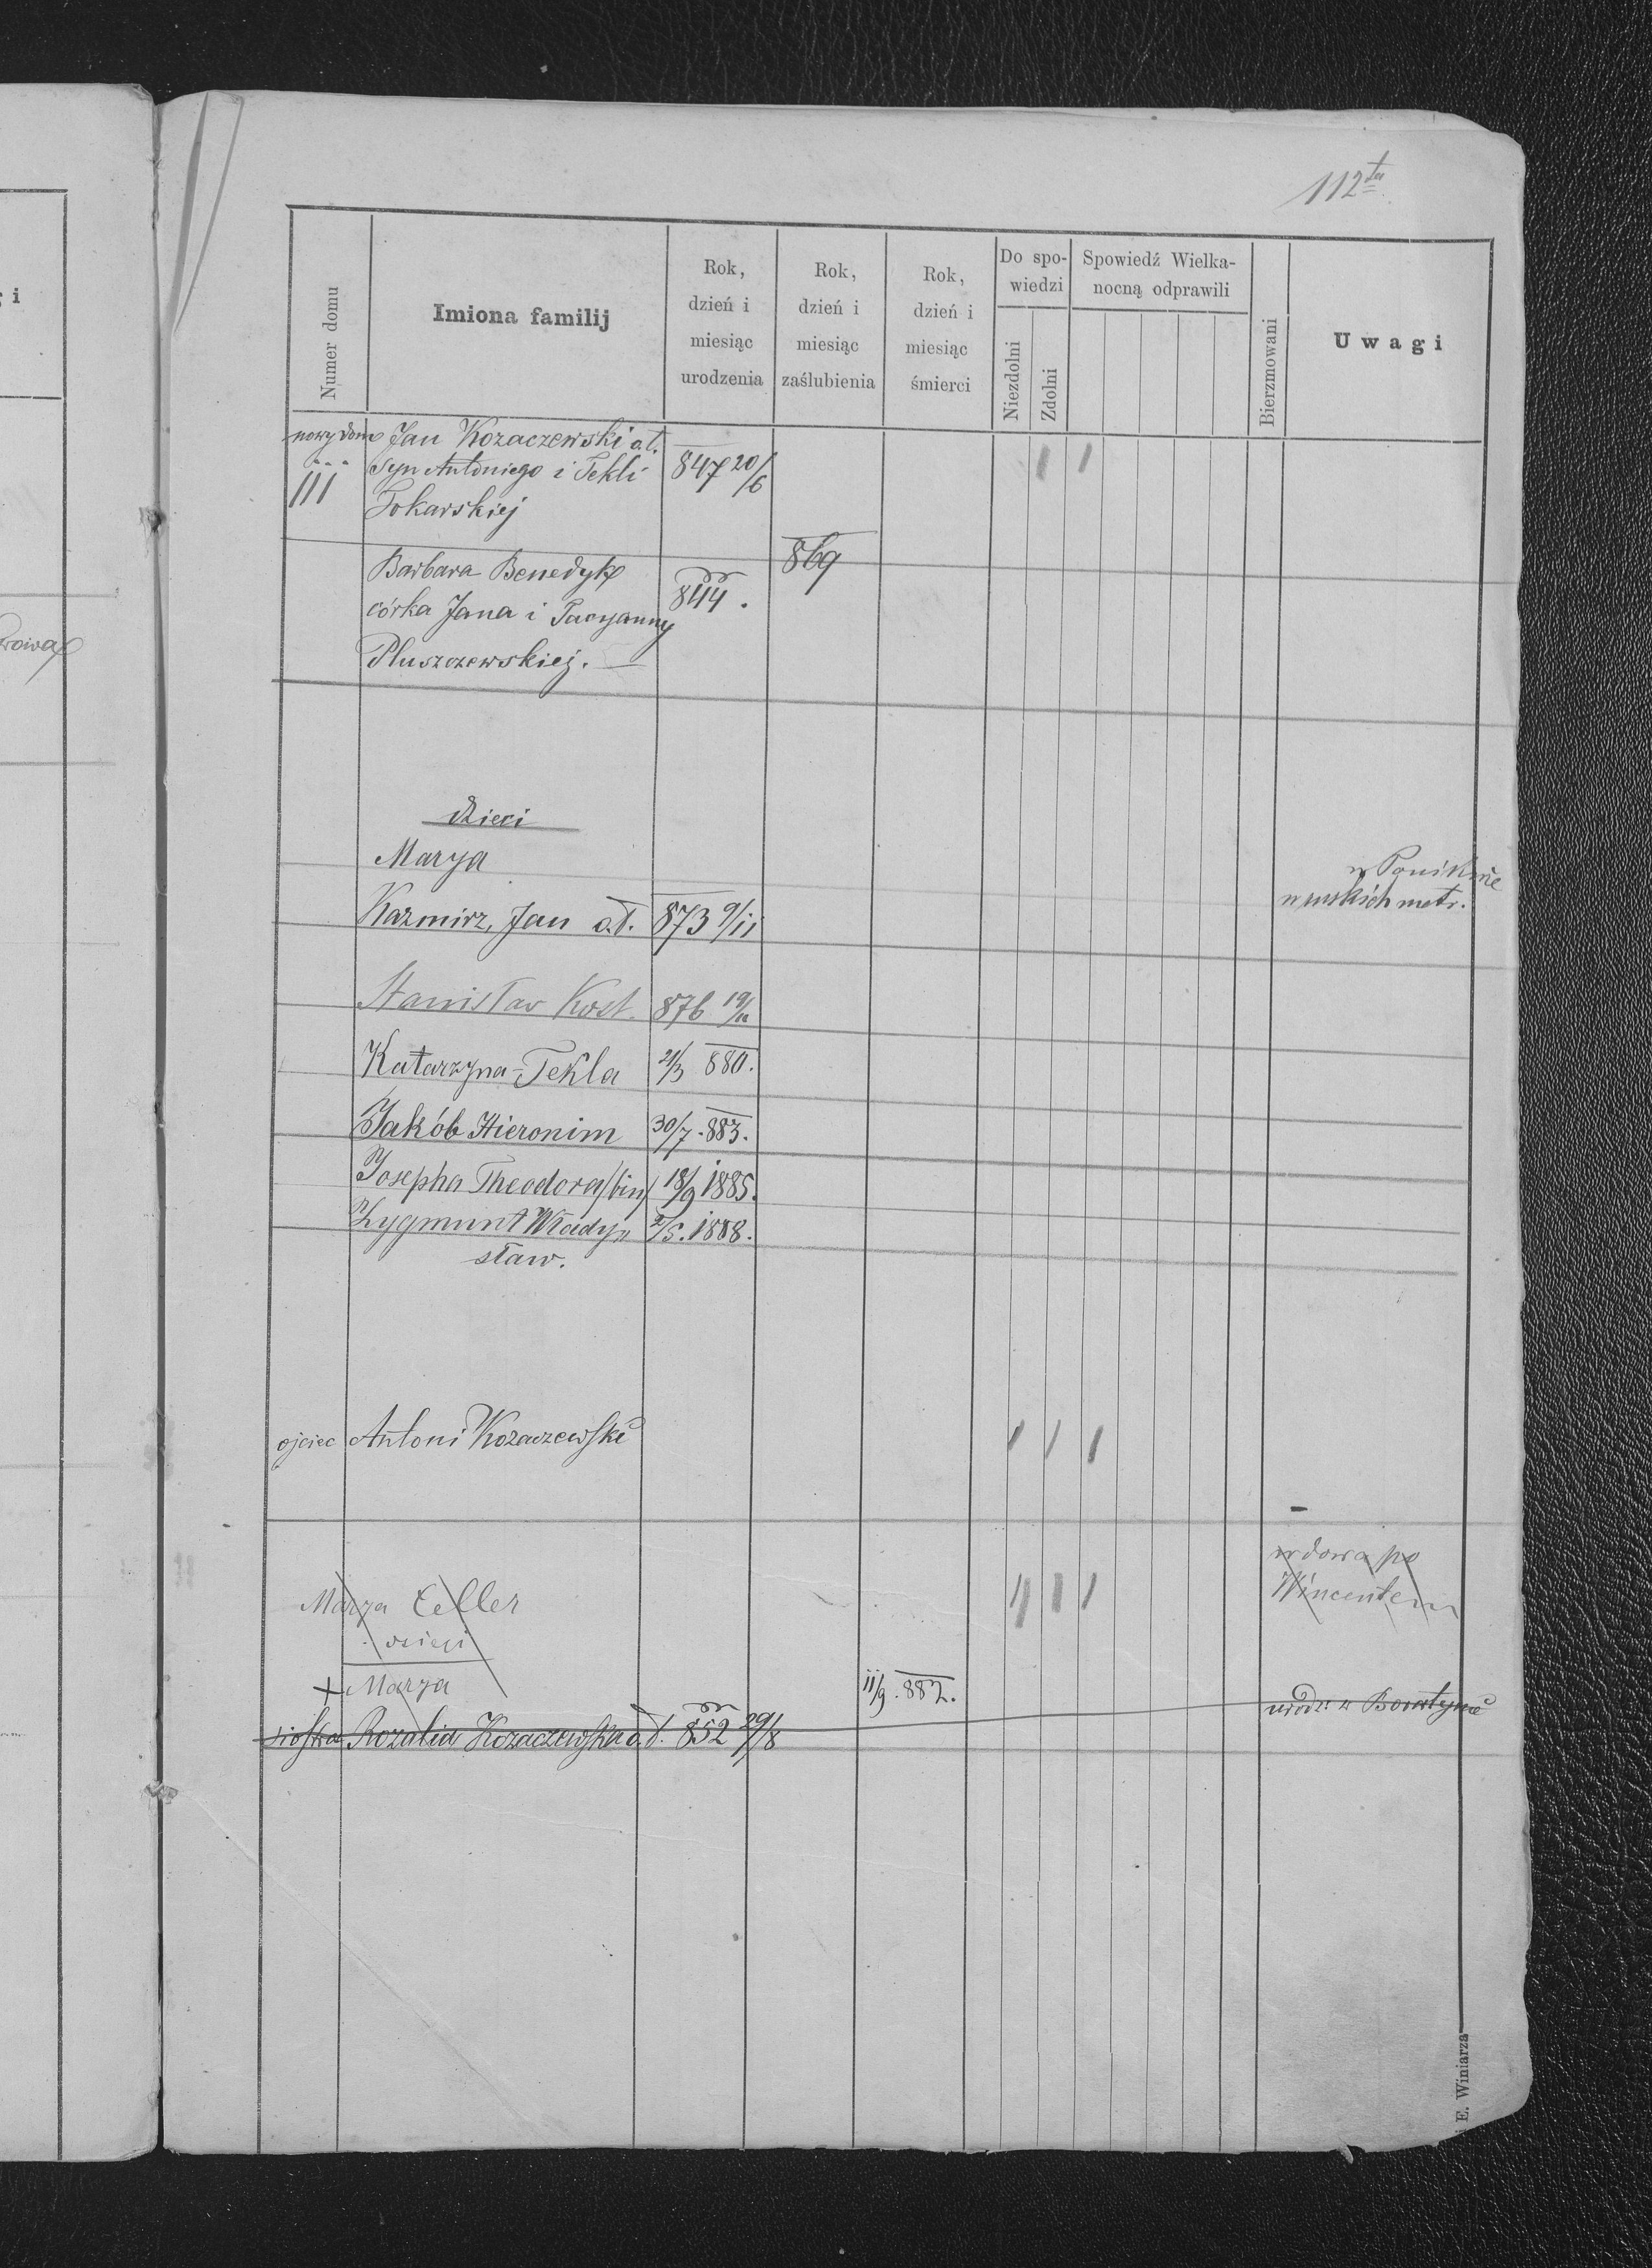 112ta
Numer domu
Imiona familij
Rok, dzień i miesiąc urodzenia
Rok, dzień i miesiąc zaślubienia
Rok, dzień i miesiąc śmierci
Do spo-
wiedzi
Niezdolni
Zdolni
Spowiedź Wielka-
nocną odprawili
Bierzmowani
Uwagi
nowy dom Jan Kozaczewski a.t.
111 syn Antoniego i Tekli 847 20/6
Tokarskiej
869
Barbara Benedyk
córka Jana i Tacyanny 844.
Pluszczewskiej. —
dzieci
Marya w Ponikwie
w ruskich metr.
Kazmirz, Jan a.t. 873 9/11
Stanisław Kost. 876 19/11
Katarzyna-Tekla 21/3 880.
Jakób Hieronim 30/7. 883.
Josepha Theodora/bin/ 18/9 1885.
Zygmunt Włady= 2/5. 1888.
sław.
ojciec Antoni Kozaczewski
wdowa po
Wincentem
Marya Celler
dzieci
+ Marya 11/9. 882.
siostra Rozalia Kozaczewska a.t. 852 29/8 urodz. w Boratynie
E. Winiarza